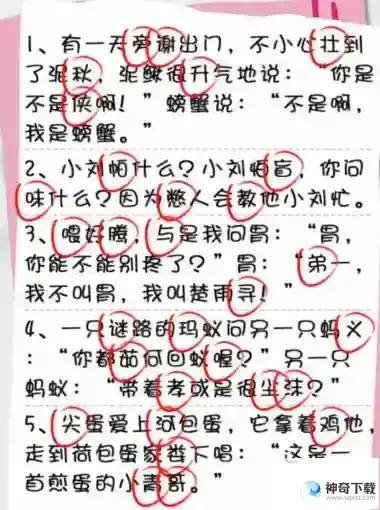 1、有一天旁谢出门，不小心壮到
了泥秋，泥鳅很升气地说：“你是
不是侠啊！”螃蟹说：“不是啊，
我是螃蟹。”
2、小刘帕什么？小刘怕盲，你问
味什么？因为憋人会教他小刘忙。
3、喂好腾，与是我问胃：“胃，
你能不能别疼了？”胃：“弟一，
我不叫胃，我叫楚雨寻！”
4、一只谜路的玛蚁问另一只蚂义
：“你都茄何回蚁喔？”另一只
蚂蚁：“带着孝或是很尘沫？”
5、尖蛋爱上河包蛋，它拿着鸡他，
走到荷包蛋家娄下唱：“这是一
首煎蛋的小青哥。”
神奇下载
www.sqxzz.com